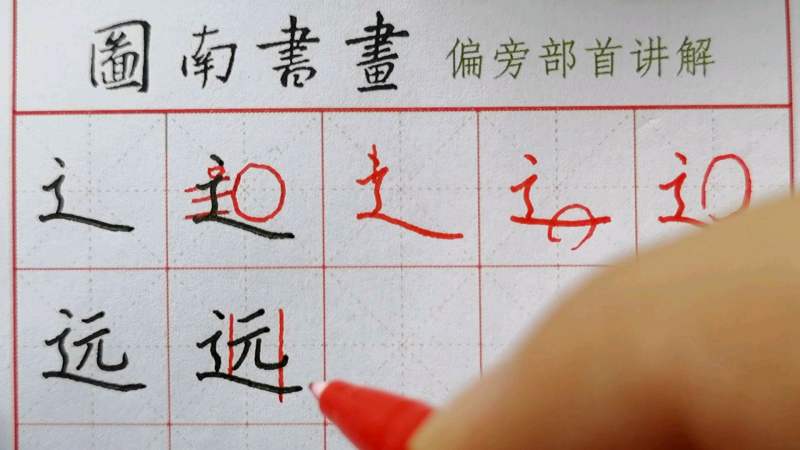 圖南書畫 偏旁部首讲解
辶 辶 辶 辶 辶
远 远